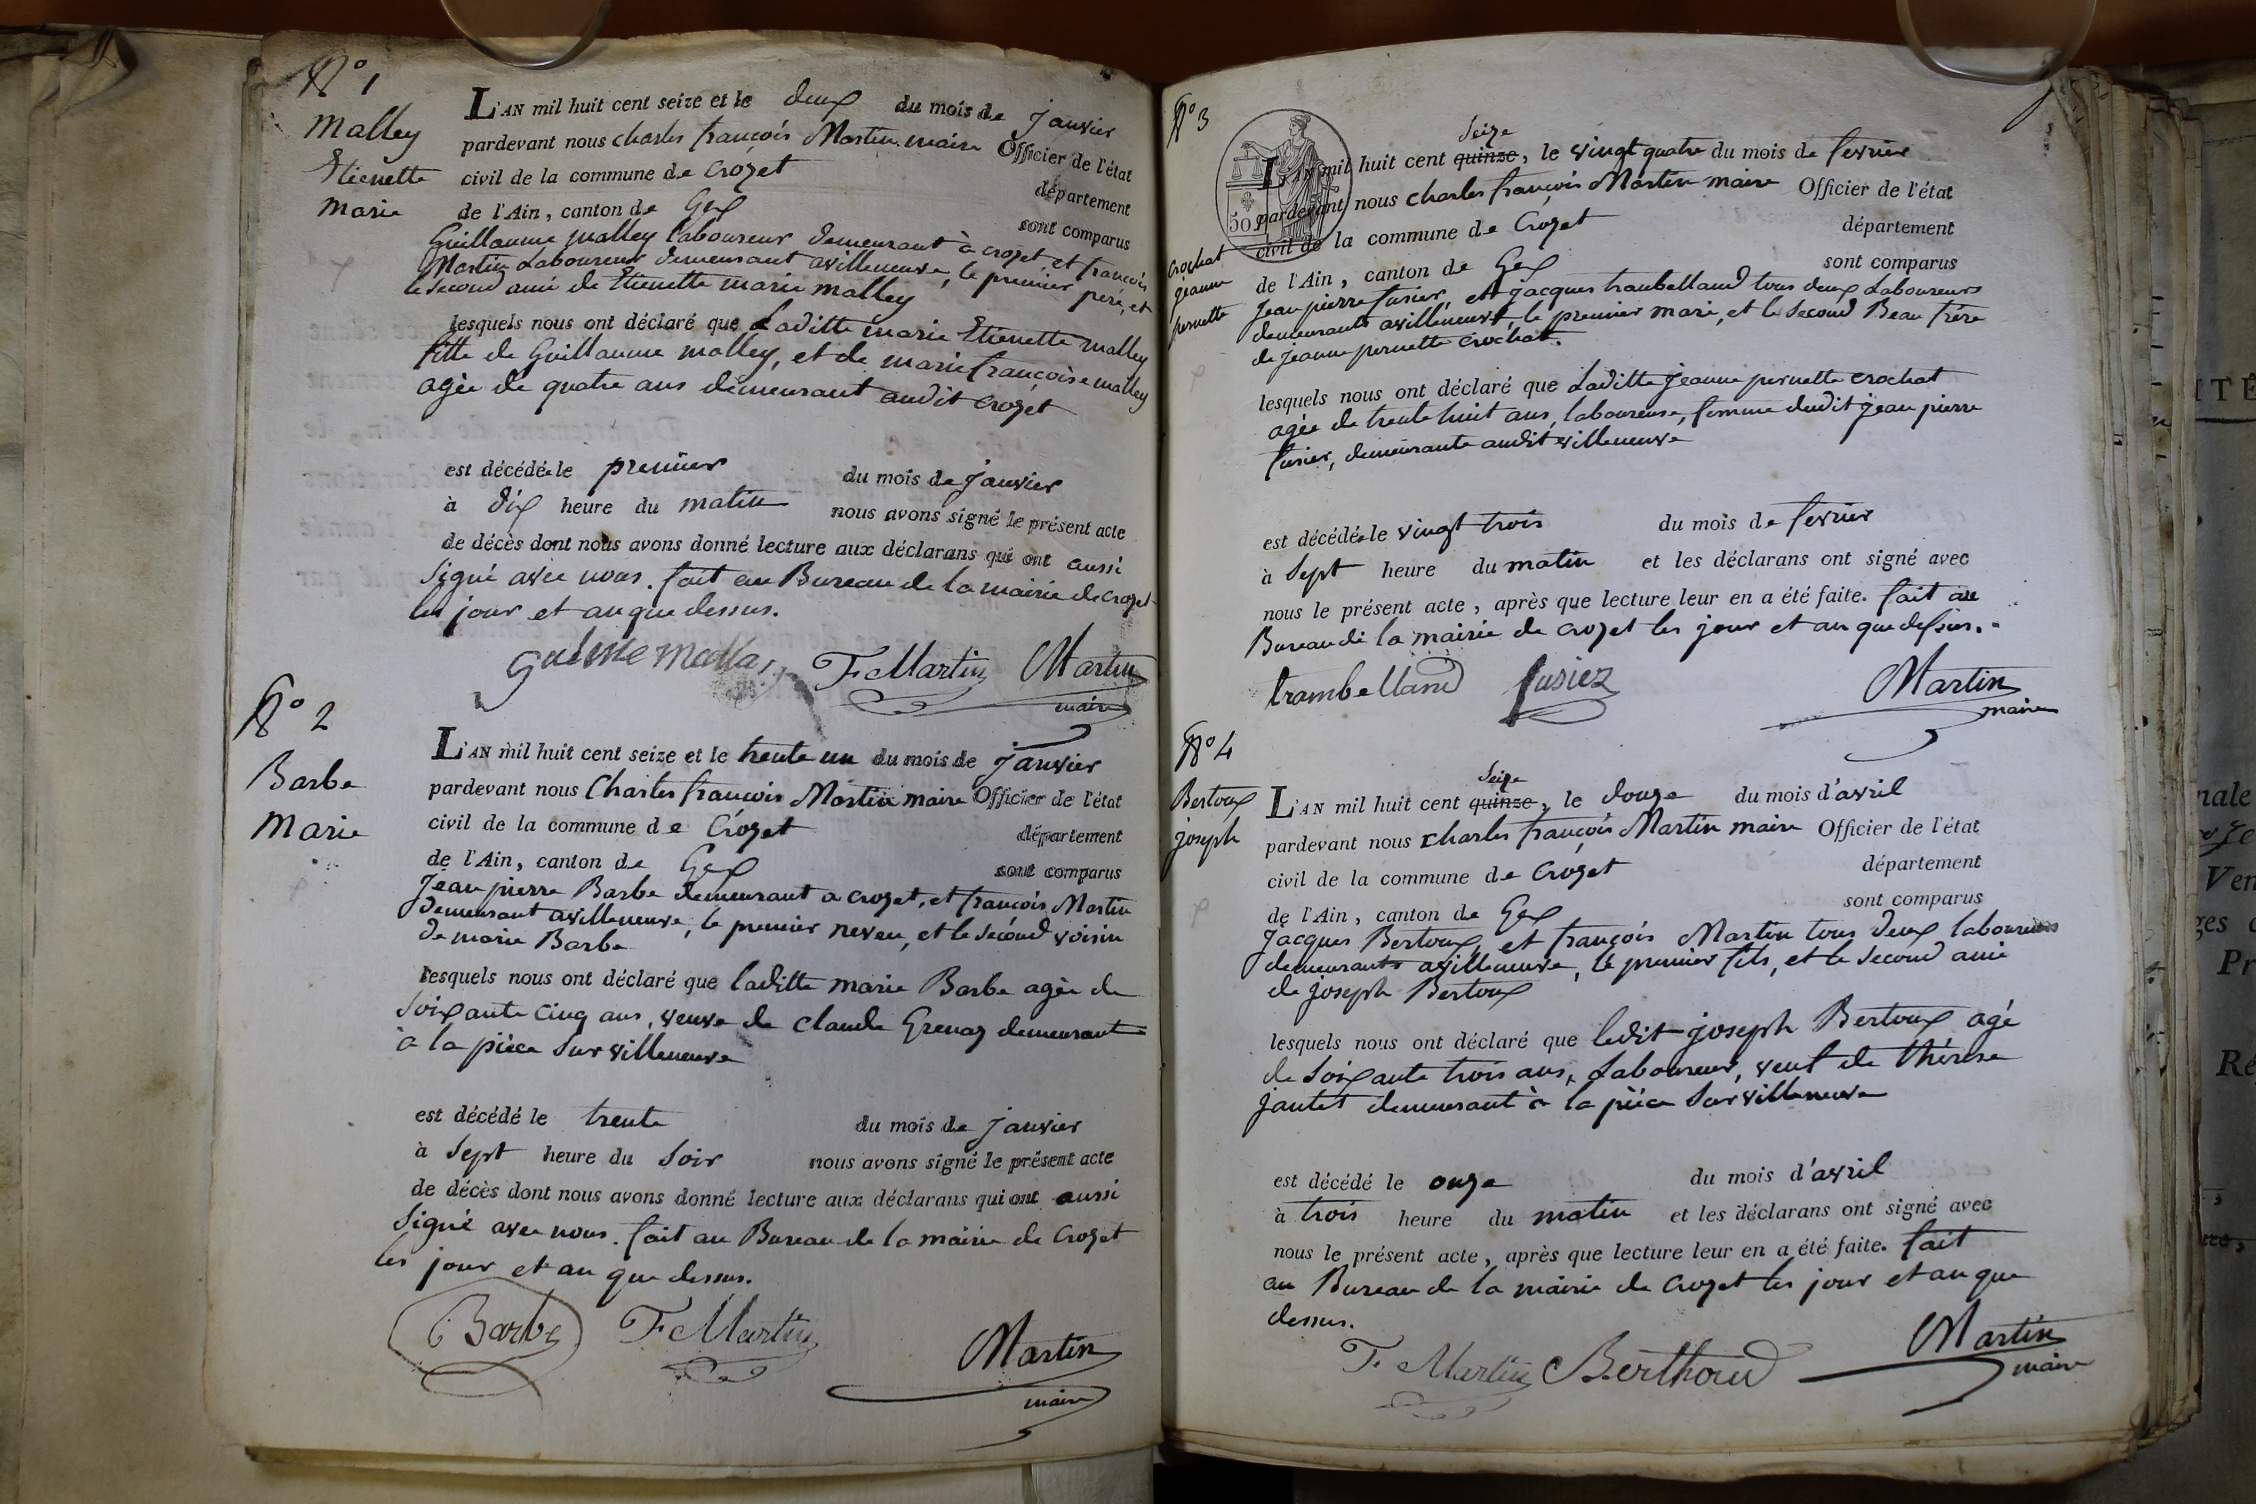 N° 1
Malley
Etienette
Marie
L'AN mil huit cent seize et le deux du mois de janvier
pardevant nous Charles françois Martin maire Officier de l'état
civil de la commune de Crozet département
de l'Ain, canton de Gex sont comparus
Guillaume Malley laboureur demeurant à crozet et françois
Martin Laboureur demeurant avilleneuve, le premier pere, et
le second ami de Etienette marie malley
lesquels nous ont déclaré que Laditte marie Etienette malley
fille de Guillaume malley, et de marie françoise malley
agée de quatre ans demeurant audit crozet
est décédée le premier du mois de janvier
à dix heure du matin nous avons signé le présent acte
de décès dont nous avons donné lecture aux déclarans qui ont aussi
signé avec nous. fait au Bureau de la mairie de crozet
les jour et an que dessus.
F. Martin Martin
maire
N° 2
Barbe
Marie
L'AN mil huit cent seize et le trente un du mois de janvier
pardevant nous Charles françois Martin maire Officier de l'état
civil de la commune de Crozet département
de l'Ain, canton de Gex sont comparus
Jean pierre Barbe demeurant a crozet, et françois Martin
demeurant avilleneuve, le premier neveu, et le sécond voisin
de marie Barbe
lesquels nous ont déclaré que laditte marie Barbe agée de
soixante cinq ans, veuve de claude Grenaz demeurant
à la pièce sur villeneuve
est décédé le trente du mois de janvier
à sept heure du soir nous avons signé le présent acte
de décès dont nous avons donné lecture aux déclarans qui ont aussi
signé avec nous. fait au Bureau de la mairie de crozet
les jour et an que dessus.
Barbe F. Martin
Martin
maire
N° 3
crochat
jeanne
pernette
50
seize
L'AN mil huit cent quinze, le vingt quatre du mois de fevrier
pardevant nous charles françois Martin maire Officier de l'état
civil de la commune de Crozet département
de l'Ain, canton de Gex sont comparus
Jean pierre fusier, et jacques trambelland tous deux Laboureurs
demeurants avilleneuve, le premier mari, et le second Beau frère
de jeanne pernette crochat.
lesquels nous ont déclaré que Laditte jeanne pernette crochat
agée de trente huit ans, laboureuse, femme dudit jean pierre
fusier, demeurante audit villeneuve
est décédée le vingt trois du mois de fevrier
à sept heure du matin et les déclarans ont signé avec
nous le présent acte, après que lecture leur en a été faite. fait au
Bureau de la mairie de crozet les jour et an que dessus.
trambelland fusiez Martin
maire
N° 4
Bertoux
joseph
seize
L'AN mil huit cent quinze, le douze du mois d'avril
pardevant nous charles françois Martin maire Officier de l'état
civil de la commune de Crozet département
de l'Ain, canton de Gex sont comparus
Jacques Bertoux, et françois Martin tous deux laboureurs
demeurants avilleneuve, le premier fils, et le second ami
de joseph Bertoux
lesquels nous ont déclaré que ledit joseph Bertoux agé
de soixante trois ans, Laboureur, veuf de thérese
jantet demeurant à la pièce sur villeneuve
est décédé le onze du mois d'avril
à trois heure du matin et les déclarans ont signé avec
nous le présent acte, après que lecture leur en a été faite. fait
au Bureau de la mairie de crozet les jour et an que
dessus.
F. Martin Berthoud Martin
maire